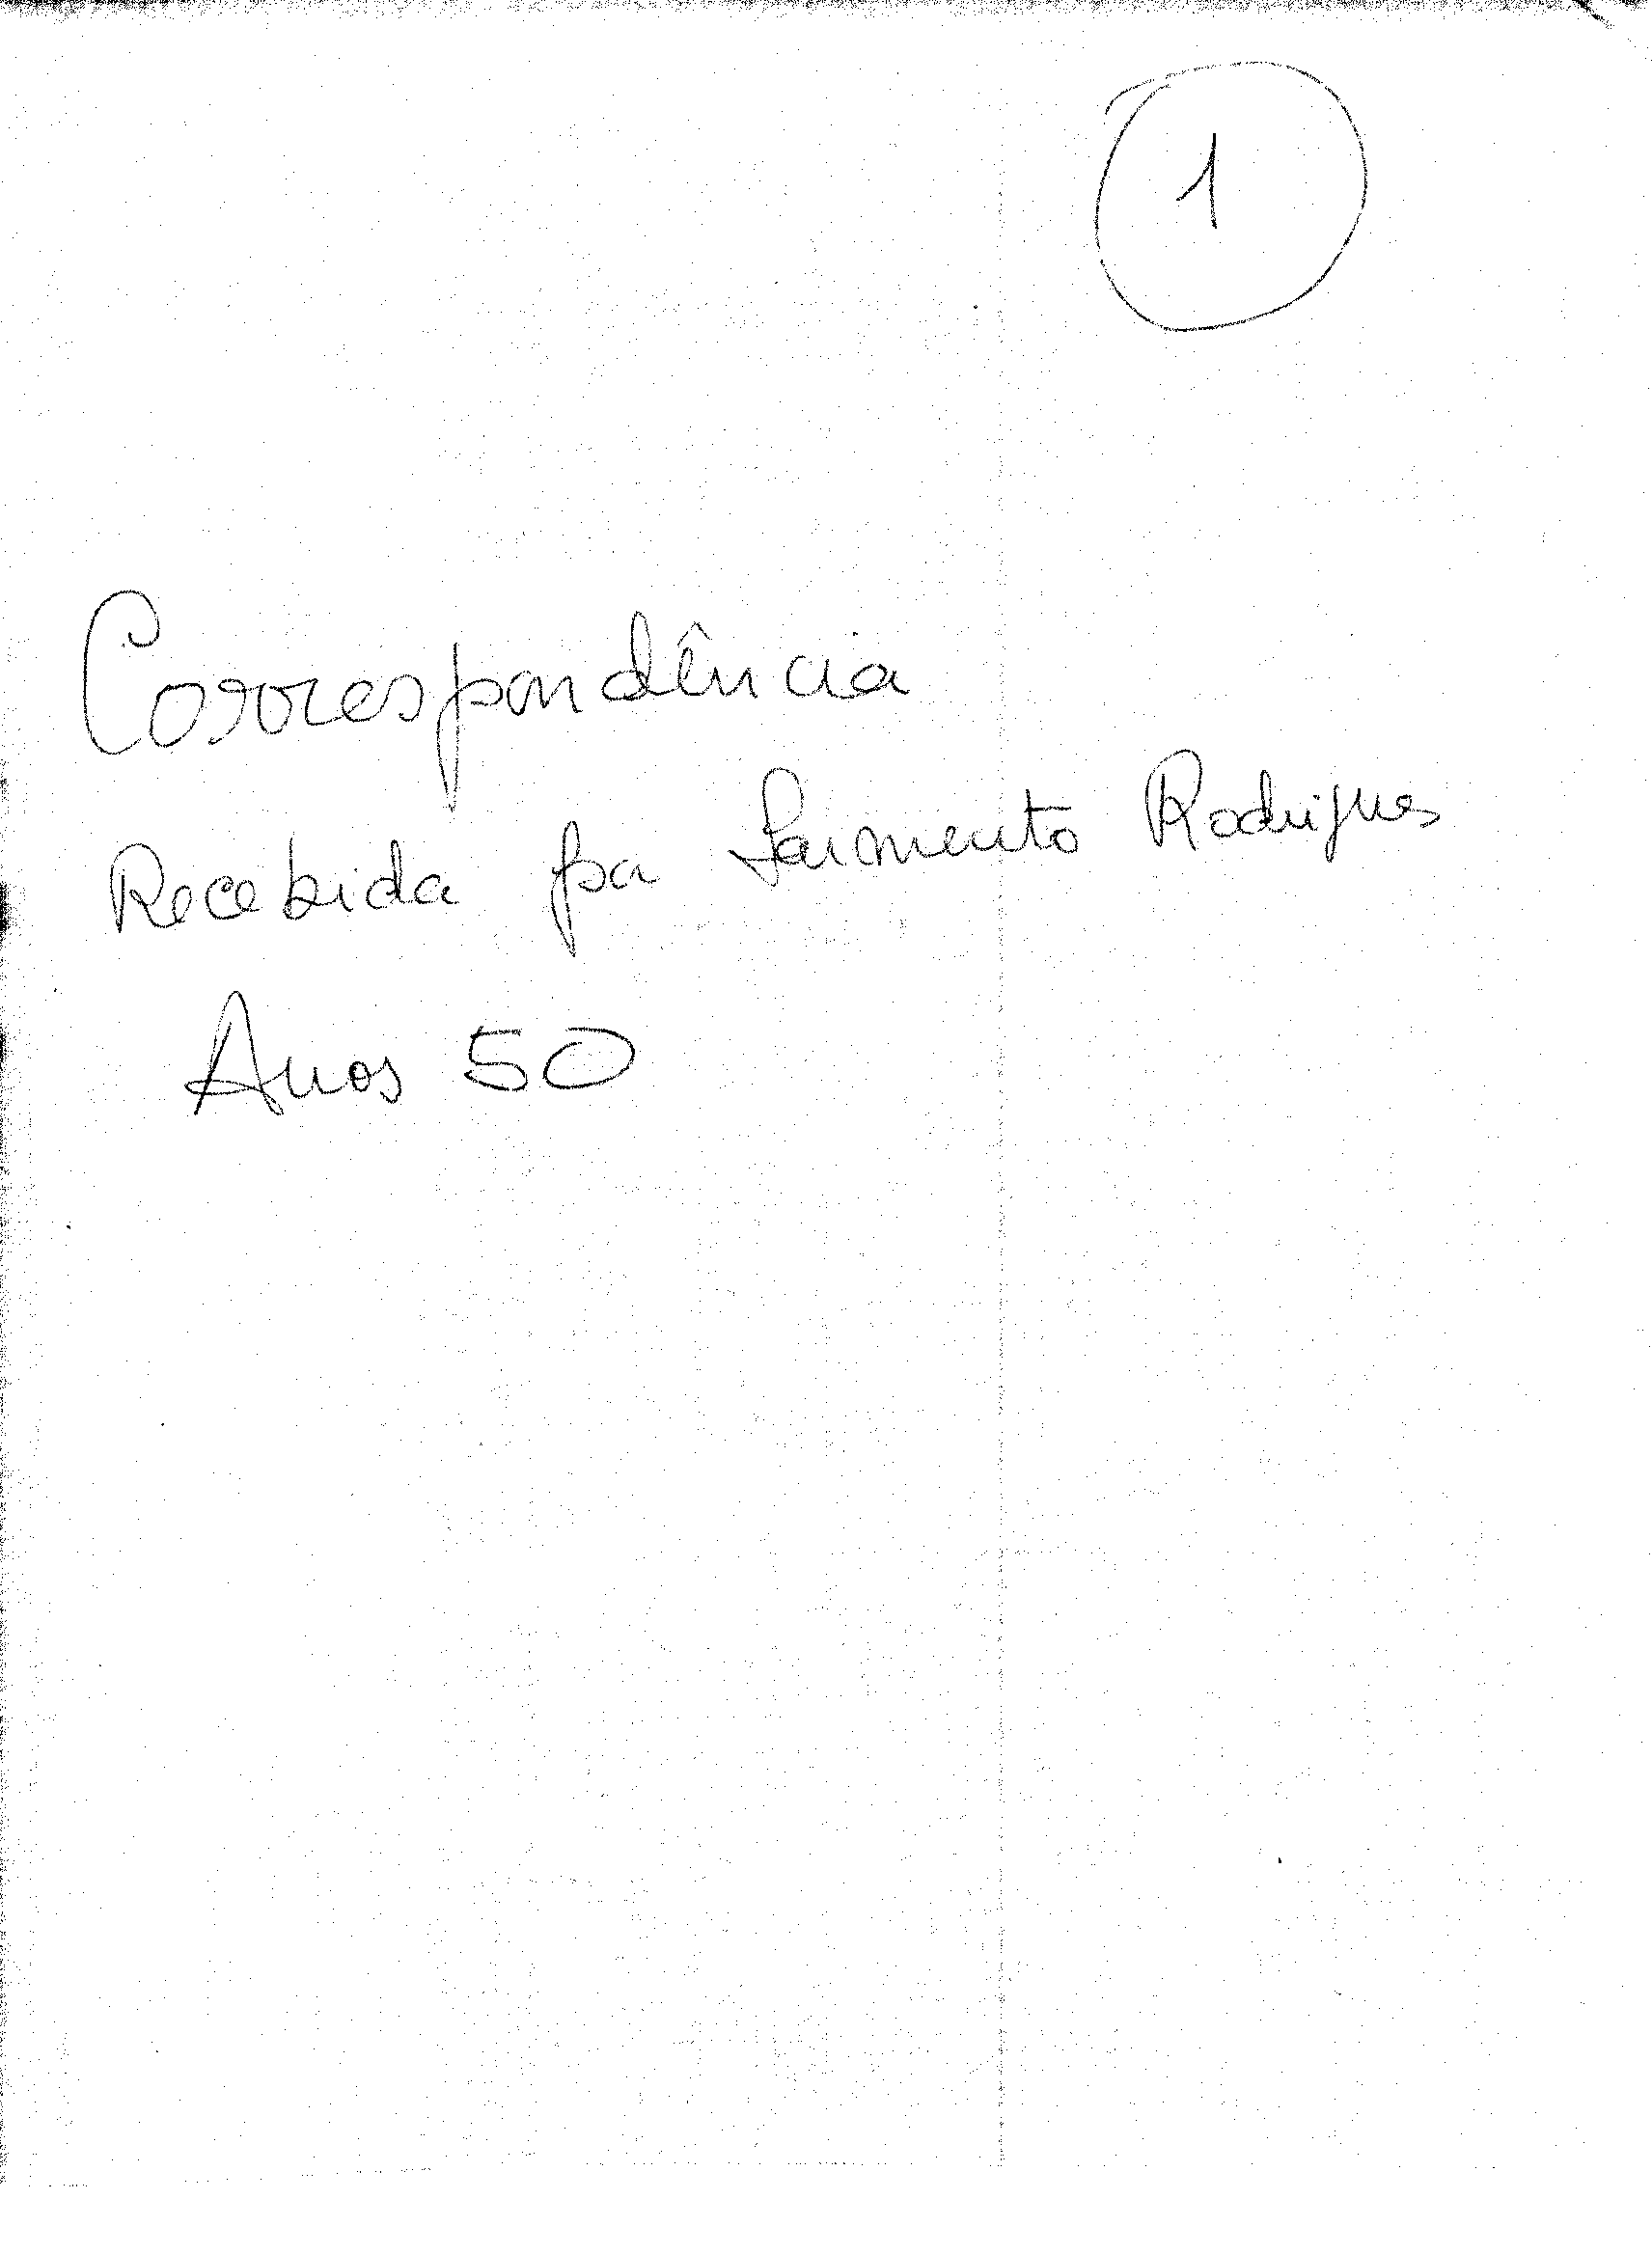 1
Correspondência
Recebida por Sarmento Rodrigues
Anos 50